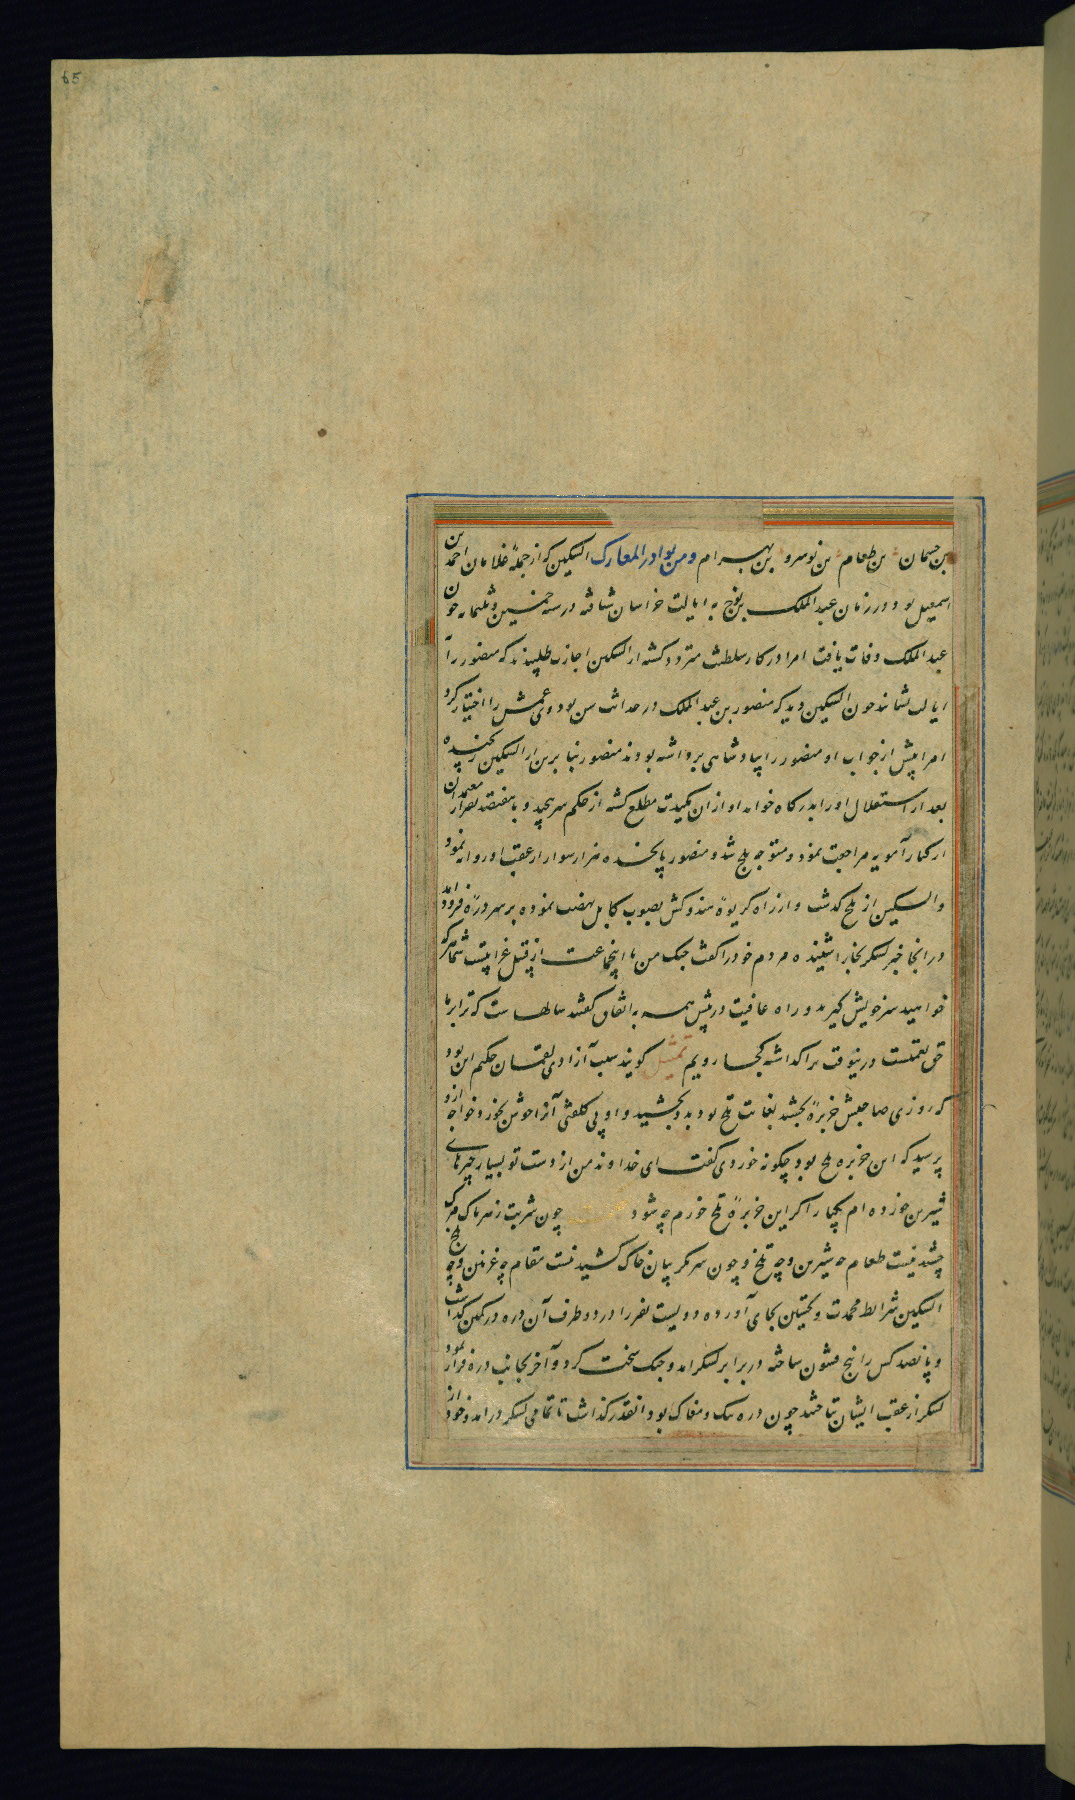 65
بن جسمان بن طعام بن نوسرو بن بهرام ومن بوادر المعارک الپتکین که از جملهٔ غلامان احمد بن
اسمعیل بود و در زمان عبد الملک بن نوح به ایالت خراسان شتافته در سنه خمسین و ثلثمایه چون
عبد الملک وفات یافت امرا در کار سلطنت متردد کشته از الپتکین اجازت طلبیدند که منصور را
ایالت نشانند چون الپتکین دید که منصور بن عبد الملک در حداثت سن بود وی عمش را اختیار کرد
امرا پیش از جواب او منصور را بپادشاهی برداشته بودند منصور بنا برین از الپتکین رنجیده
بعد از استقلال او را بدرکاه خواند او از ان کیدت مطلع کشته از حکم سر پیچید و با هفتصد نفر از معتمدان
از کنار آمویه مراجعت نمود و متوجه بلخ شد و منصور پانزده هزار سوار از عقب او روانه نمود
و الپتکین از بلخ کذشت و از راه کریوهٔ هندوکش بصوب کابل نهضت نموده بر سر درهٔ فرود امد
در انجا خبر لشکر بخارا شنیده مردم خود را کفت جنک من با اینجماعت از قبیل غزا نیست شما هر که
خواهید سر خویش کیرید و راه عافیت در پیش همه به اتفاق کفتند سالهاست که ترا بر ما
حق نعمتست درینوقت ترا کذاشته کجا رویم تمثیل کویند سبب آزادی لقمان حکیم این بود
که روزی صاحبش خربزهٔ بخشید بغایت تلخ بود بدو بخشید و او بی کلفتی آنرا خوش بخورد خواجه ازو
پرسید که این خربزه تلخ بود چکونه خوردی کفت ای خداوند من از دست تو بسیار چیزهای
شیرین خورده ام یکبار اکر این خربزهٔ تلخ خورم چه شود چون شربت زهرناک مرک
چشیدنیست طعام چه شیرین و چه تلخ و چون سر بکریبان خاک کشیدنست مقام چه غزنین و چه بلخ
الپتکین شرایط محمدت و تحسین بجای آورده دویست نفر را در دو طرف آن دره در کمین کذاشت
و پانصد کس را پنج قشون ساخته در برابر لشکر امد و جنک سخت کرد و آخر بجانب دره فرار نمود
لشکر از عقب ایشان تاختند چون دره تنک و مغاک بود انقدر کذاشت تا تمامی لشکر در امد و خود از